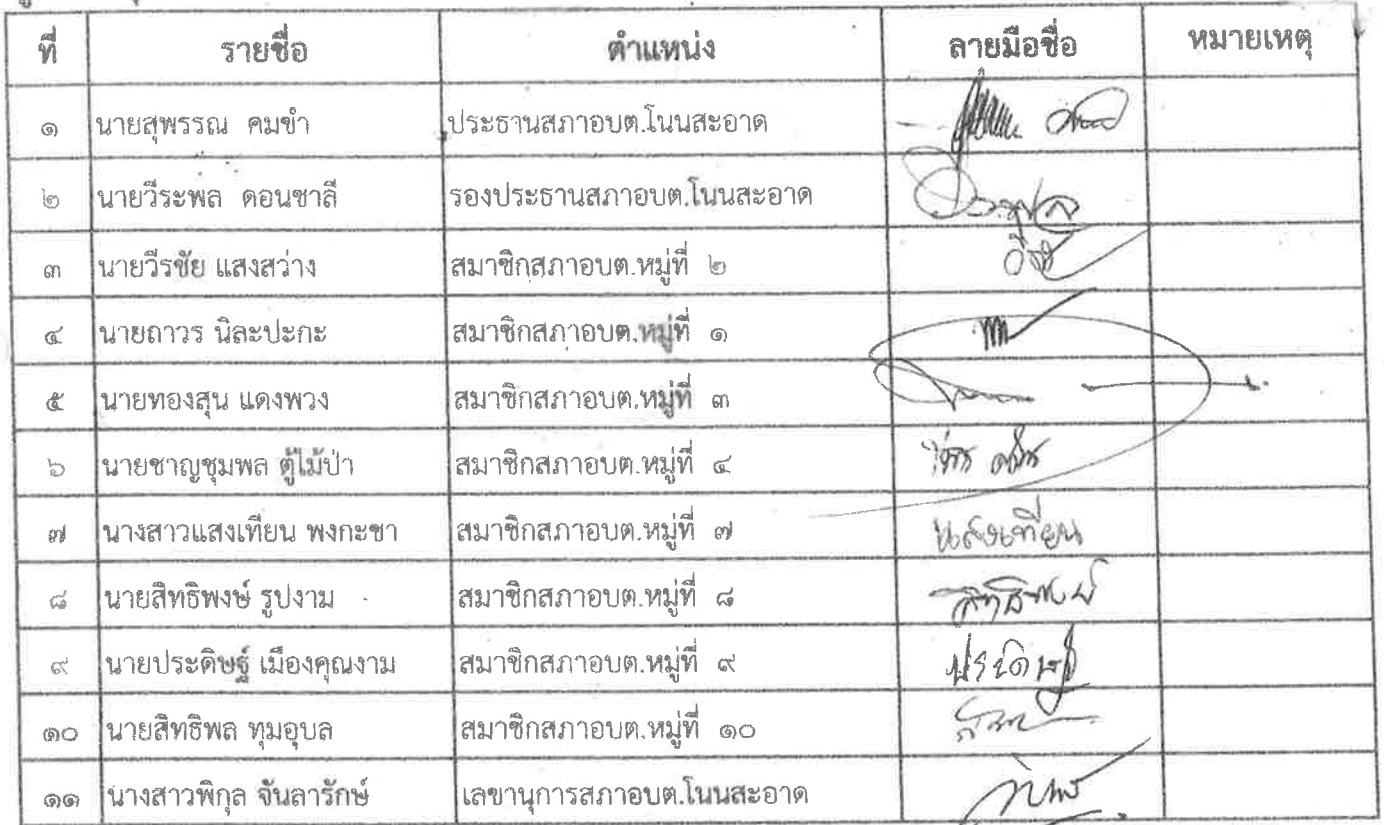 ที่ รายชื่อ ตำแหน่ง ลายมือชื่อ หมายเหตุ
๑ นายสุพรรณ คมขำ ประธานสภาอบต.โนนสะอาด
๒ นายวีระพล ดอนชาลี รองประธานสภาอบต.โนนสะอาด
๓ นายวีรชัย แสงสว่าง สมาชิกสภาอบต.หมู่ที่ ๒
๔ นายถาวร นิละปะกะ สมาชิกสภาอบต.หมู่ที่ ๑
๕ นายทองสุน แดงพวง สมาชิกสภาอบต.หมู่ที่ ๓
๖ นายชาญชุมพล ตู้ไม้ป่า สมาชิกสภาอบต.หมู่ที่ ๔
๗ นางสาวแสงเทียน พงกะชา สมาชิกสภาอบต.หมู่ที่ ๗ แสงเทียน
๘ นายสิทธิพงษ์ รูปงาม สมาชิกสภาอบต.หมู่ที่ ๘ สิทธิพงษ์
๙ นายประดิษฐ์ เมืองคุณงาม สมาชิกสภาอบต.หมู่ที่ ๙ ประดิษฐ์
๑๐ นายสิทธิพล ทุมอุบล สมาชิกสภาอบต.หมู่ที่ ๑๐
๑๑ นางสาวพิกุล จันลารักษ์ เลขานุการสภาอบต.โนนสะอาด